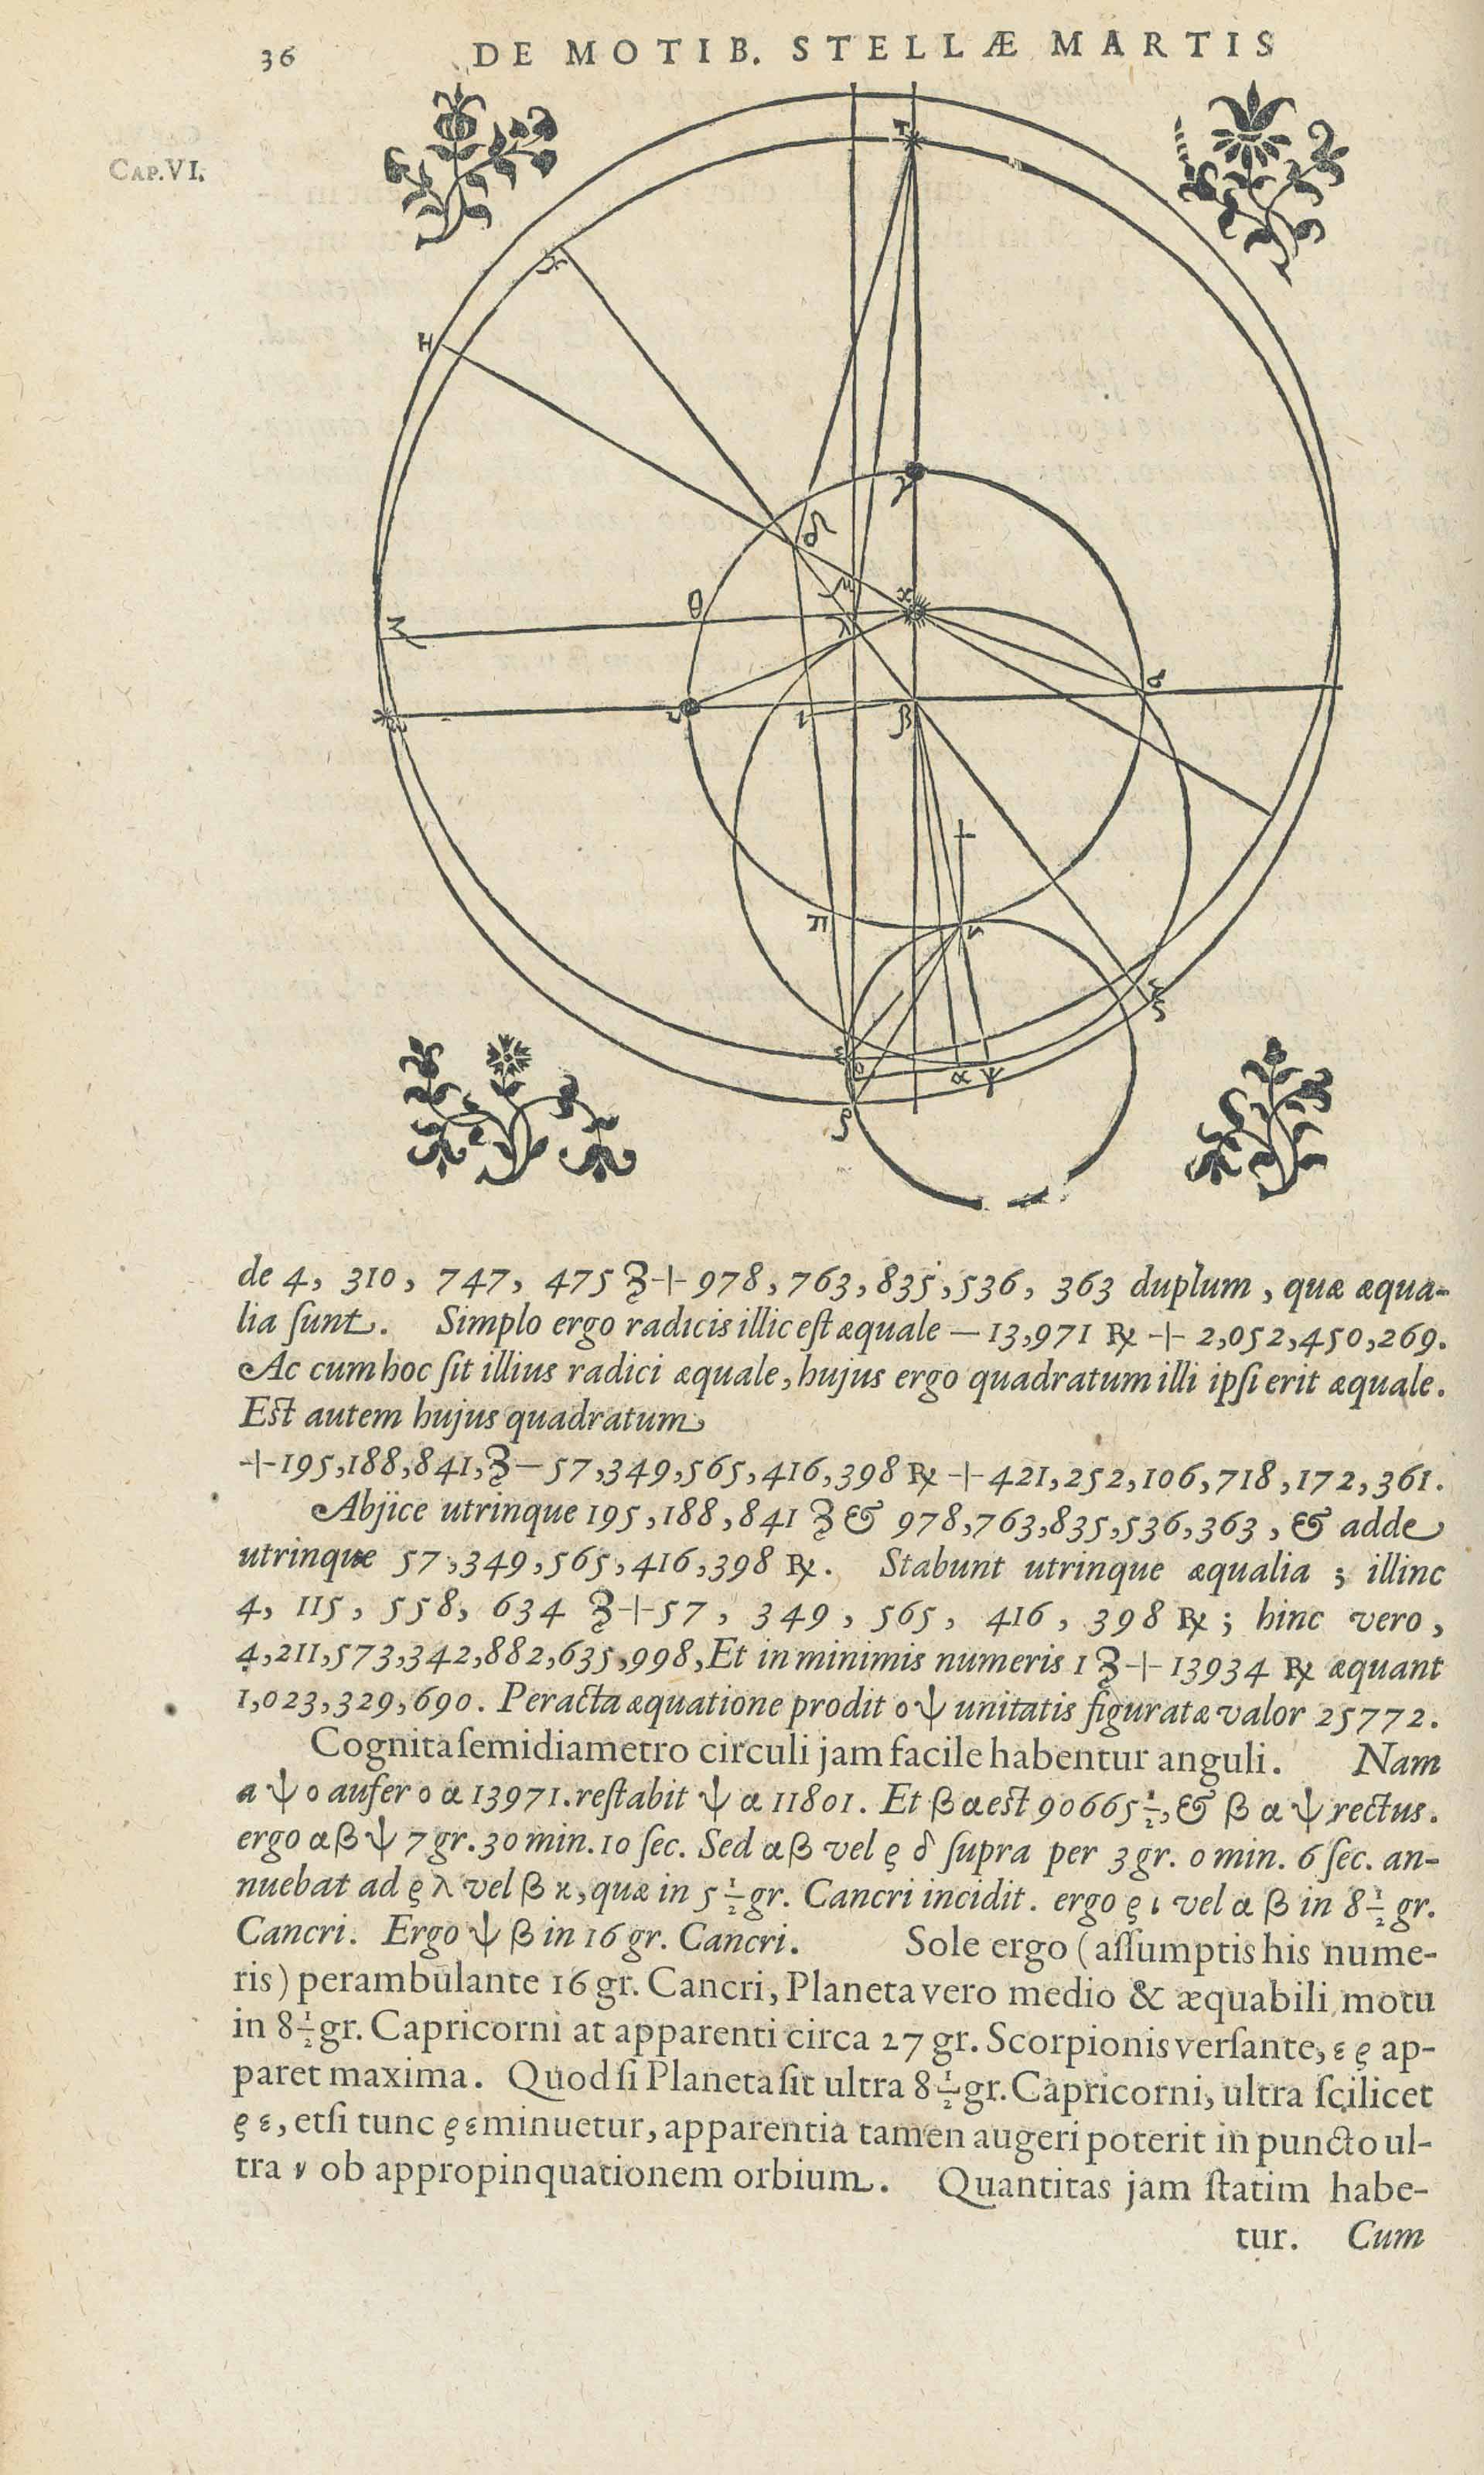 36 DE MOTIB. STELLÆ MARTIS
CAP. VI.
T
H
θ
γ
δ
μ
ϰ
λ
β
ι
ω
π
ε
ο
α ψ
ξ
ρ
de 4, 310, 747, 475 ʒ + 978, 763, 835, 536, 363 duplum, quæ æqua-
lia ſunt. Simplo ergo radicis illic eſt æquale — 13,971 ℞ + 2,052,450,269.
Ac cum hoc ſit illius radici æquale, hujus ergo quadratum illi ipſi erit æquale.
Eſt autem hujus quadratum
+195,188,841,ʒ — 57,349,565,416,398 ℞ + 421,252,106,718,172,361.
Abjice utrinque 195,188,841 ʒ & 978,763,835,536,363, & adde
utrinque 57,349,565,416,398 ℞. Stabunt utrinque æqualia; illinc
4, 115, 558, 634 ʒ + 57, 349, 565, 416, 398 ℞; hinc vero,
4,211,573,342,882,635,998, Et in minimis numeris 1 ʒ + 13934 ℞ æquant
1,023,329,690. Peracta æquatione prodit ο ψ unitatis figuratæ valor 25772.
Cognita ſemidiametro circuli jam facile habentur anguli. Nam
a ψ ο aufer ο α 13971. reſtabit ψ α 11801. Et β α eſt 90665½, & β α ψ rectus.
ergo α β ψ 7 gr. 30 min. 10 ſec. Sed α β vel ρ δ ſupra per 3 gr. 0 min. 6 ſec. an-
nuebat ad ρ λ vel β ϰ, quæ in 5½ gr. Cancri incidit. ergo ρ ι vel α β in 8½ gr.
Cancri. Ergo ψ β in 16 gr. Cancri. Sole ergo (aſſumptis his nume-
ris) perambulante 16 gr. Cancri, Planeta vero medio & æquabili motu
in 8½ gr. Capricorni at apparenti circa 27 gr. Scorpionis verſante, ε ρ ap-
paret maxima. Quod ſi Planeta ſit ultra 8½ gr. Capricorni, ultra ſcilicet
ρ ε, etſi tunc ρ ε minuetur, apparentia tamen augeri poterit in puncto ul-
tra ν ob appropinquationem orbium. Quantitas jam ſtatim habe-
tur. Cum